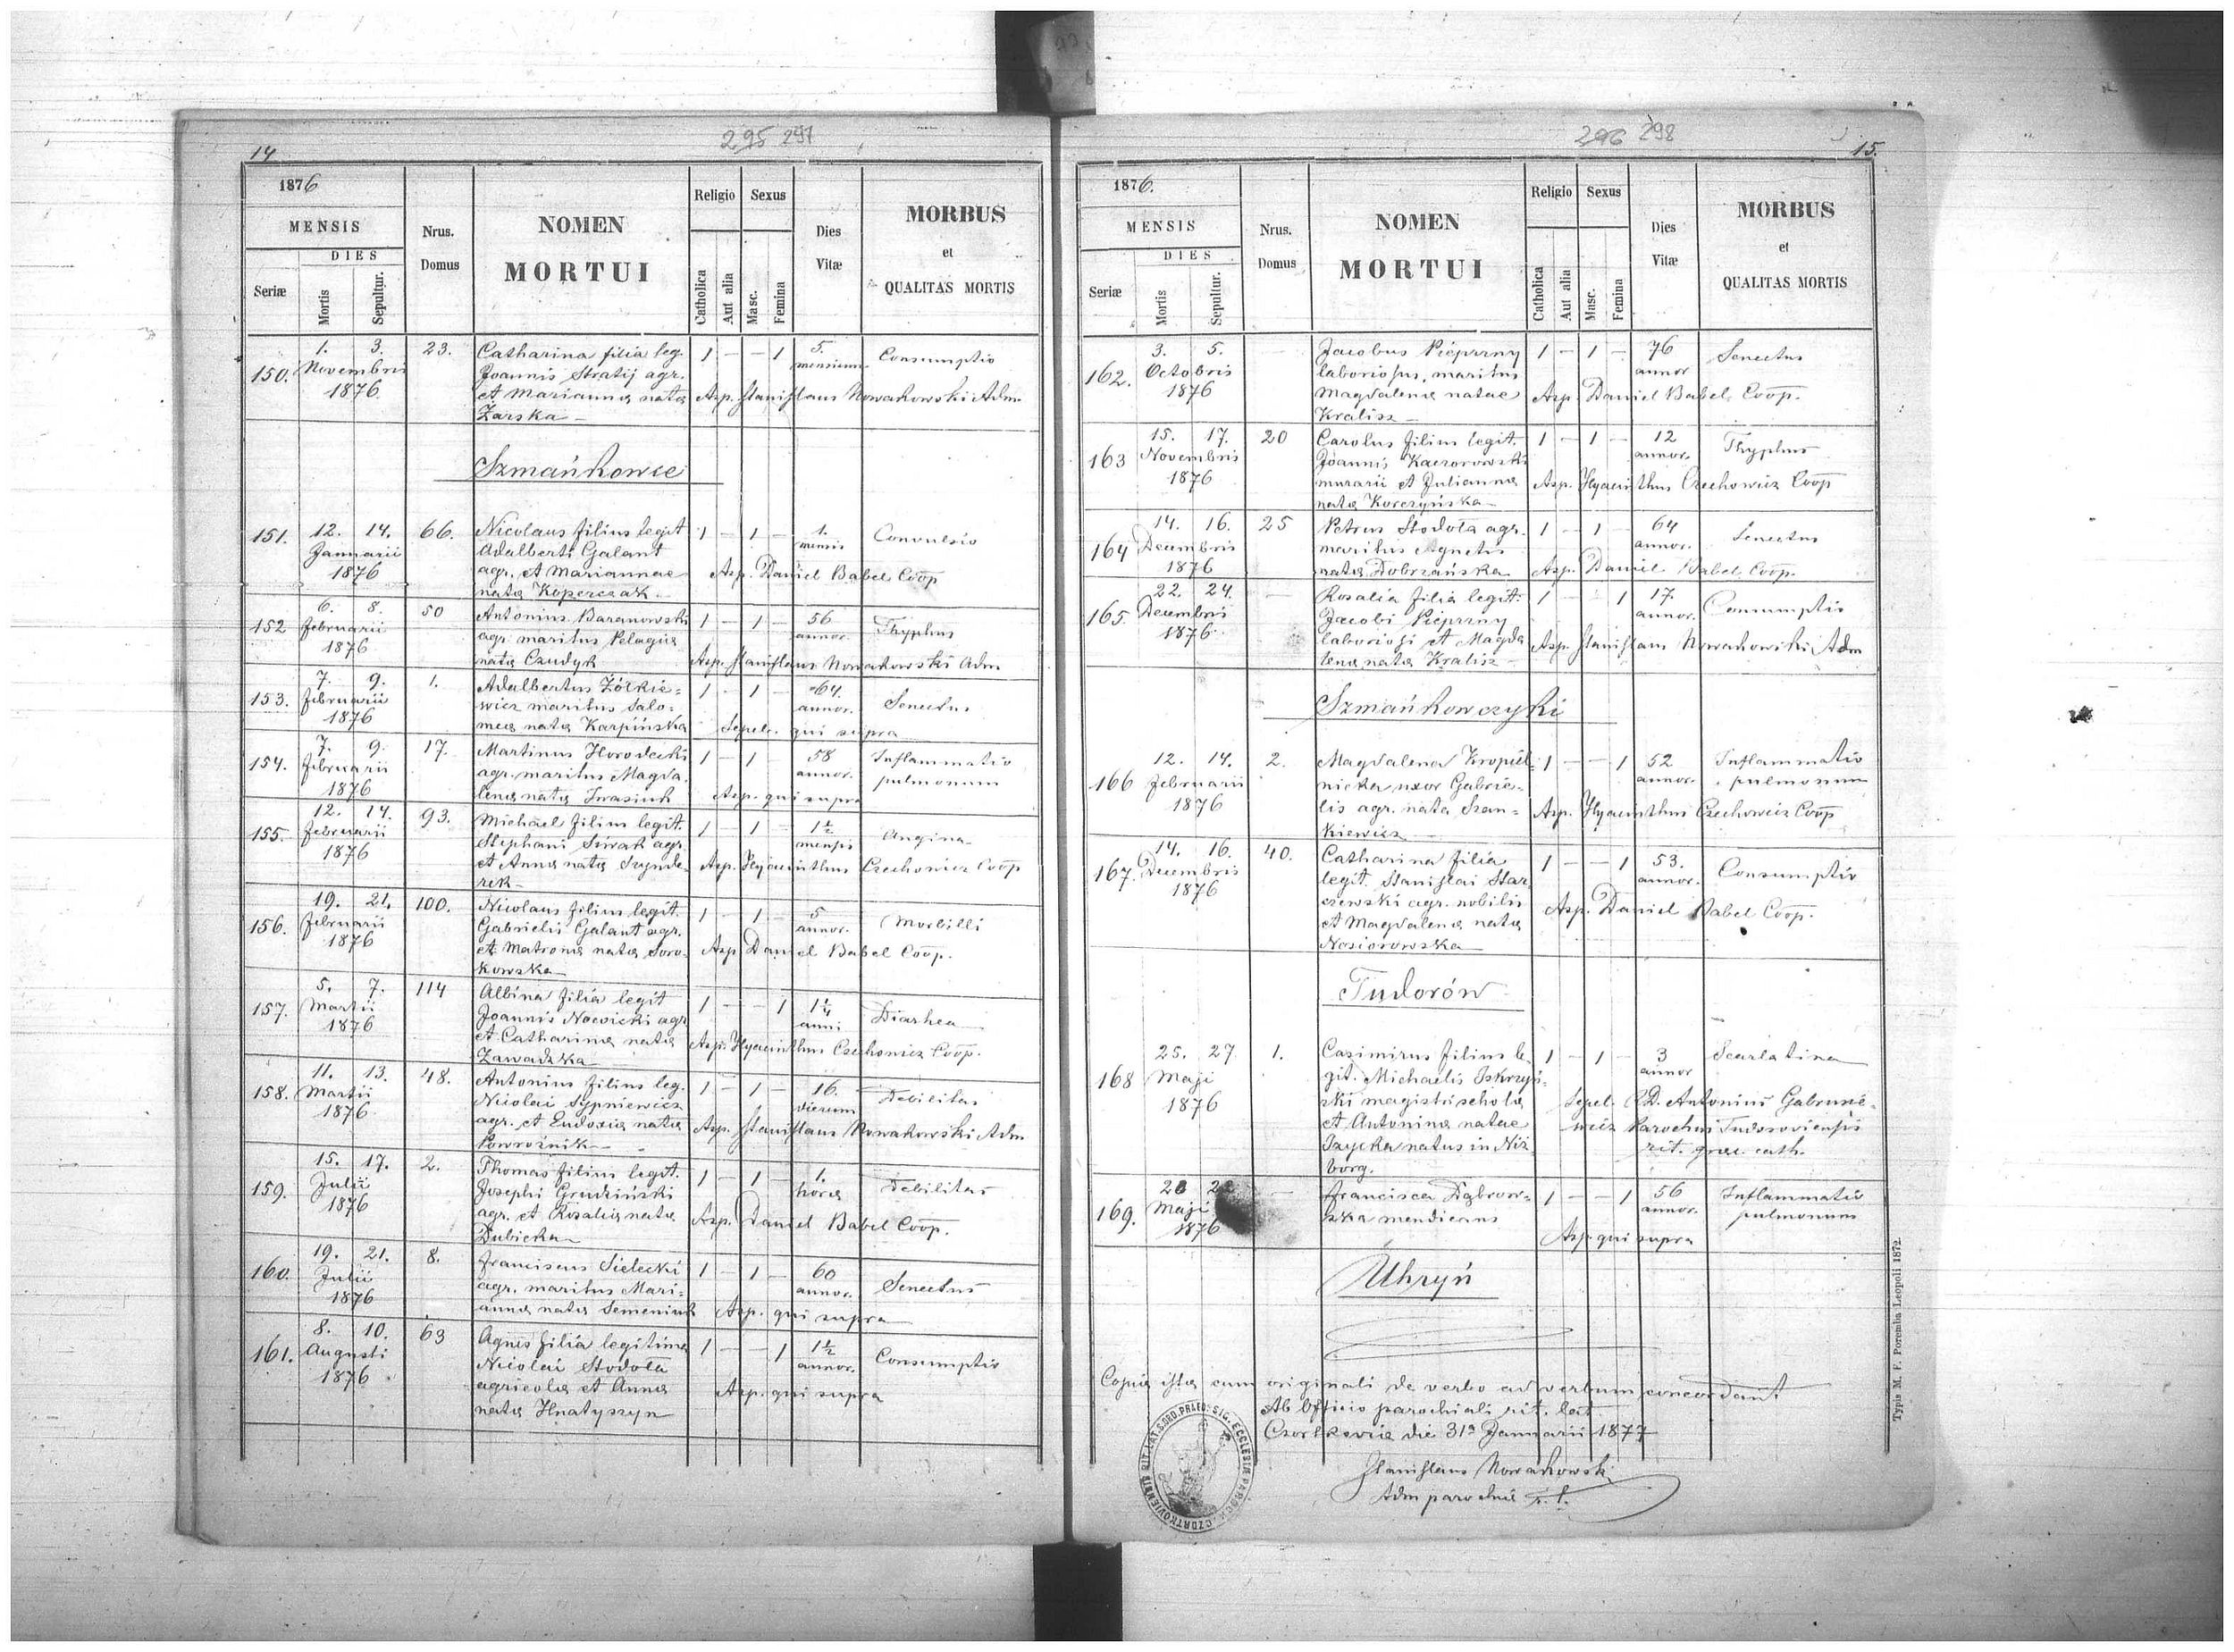 295 297
14
1876
MENSIS
DIES
Seriæ
Mortis
Sepultur.
Nrus.
Domus
NOMEN
MORTUI
Religio
Sexus
Catholica
Aut alia
Masc.
Femina
Dies
Vitæ
MORBUS
et
QUALITAS MORTIS
1. 3. 23. Catharina filia leg. 1 — — 1 5. Consumptio
150. Novembris Joannis Stratij agr. mensium
1876 et Mariannæ nata Asp. Stanislaus Nowakowski Adm.
Żarska —
Szmańkowce
151. 12. 14. 66. Nicolaus filius legit 1 — 1 — 1. Convulsio
Januarii Adalberti Galant mensis
1876 agr. et Mariannae Asp. Daniel Babel Coop
nata Koperczak
6. 8. 50 Antonius Baranowski 1 — 1 — 56 Thyphus
152 Februarii agr. maritus Pelagiæ annor.
1876 nata Czudyk Asp. Stanislaus Nowakowski Adm
7. 9. 1. Adalbertus Żółkie= 1 — 1 — 64. Senectus
153. Februarii wicz maritus Salo= annor.
1876 meæ nata Karpińska Sepele. qui supra
7. 9. 17. Martinus Horodecki 1 — 1 58 Inflammatio
154. Februarii agr. maritus Magda= annor. pulmonum
1876 lenæ nata Iwasiuk Asp. qui supra
12. 14. 93. Michael filius legit. 1 — 1 — 1½ Angina
155. Februarii Stephani Siwak agr. mensis
1876 et Anna nata Szynde= Asp. Hyacinthus Czechowicz Coop
rek —
19. 21. 100. Nicolaus filius legit. 1 — 1 — 5 Morbilli
156. Februarii Gabrielis Galant agr. annor.
1876 et Matronæ nata Soro= Asp. Daniel Babel Coop.
kowska —
5. 7. 114 Albina filia legit 1 — — 1 1¼ Diarhea
157. Martii Joannis Nowicki agr. anni
1876 et Catharinæ nata Asp. Hyacinthus Czechowicz Coop.
Zawadzka —
11. 13. 48. Antonius filius leg. 1 — 1 — 16. Debilitas
158. Martii Nicolai Sypniewicz dierum
1876 agr. et Eudoxiæ nata Asp. Stanislaus Nowakowski Adm
Powroźnik —
15. 17. 2. Thomas filius legit. 1 — 1 — 1. Debilitas
159. Julii Josephi Grudziński horæ
1876 agr. et Rosaliæ nata Asp. Daniel Babel Coop.
Dubicka —
19. 21. 8. Franciscus Sielecki 1 — 1 — 60 Senectus
160. Julii agr. maritus Mari= annor.
1876 annæ nata Semeniuk Asp. qui supra
8. 10. 63 Agnes filia legitima 1 — — 1 1½ Consumptio
161. Augusti Nicolai Stodoła annor.
1876 agricolæ et Annæ Asp. qui supra
nata Hnatyszyn
296 298
15.
1876.
MENSIS
DIES
Seriæ
Mortis
Sepultur.
Nrus.
Domus
NOMEN
MORTUI
Religio
Sexus
Catholica
Aut alia
Masc.
Femina
Dies
Vitæ
MORBUS
et
QUALITAS MORTIS
3. 5. — Jacobus Pieprzny 1 — 1 — 76 Senectus
162. Octobris laboriosus, maritus annor
1876 Magdalenæ natae Asp. Daniel Babel Coop.
Kralisz —
15. 17. 20 Carolus filius legit. 1 — 1 — 12 Thyphus
163 Novembris Joannis Kaczorowski annor.
1876 murarii et Juliannæ Asp. Hyacinthus Czechowicz Coop
nata Korczyńska —
14. 16. 25 Petrus Stodoła agr. 1 — 1 — 64 Senectus
164 Decembris maritus Agnetis annor.
1876 nata Dobrzańska Asp. Daniel Babel Coop.
22. 24. — Rosalia filia legit. 1 — 1 17. Consumptio
165. Decembris Jacobi Pieprzny annor.
1876 laboriosi et Magda Asp. Stanislaus Nowakowski Adm
lenæ nata Kralisz —
Szmańkowczyki
12. 14. 2. Magdalena Kropiel= 1 — — 1 52 Inflammatio
166 Februarii nicka uxor Gabrie= annor. pulmonum
1876 lis agr. nata Szan= Asp. Hyacinthus Czechowicz Coop
kiewicz
14. 16. 40. Catharina filia 1 — — 1 53. Consumptio
167. Decembris legit. Stanislai Star annor.
1876 czewski agr. nobilis Asp. Daniel Babel Coop.
et Magdalenæ nata
Nosiorowska —
Tudorów
25. 27 1. Casimirus filius le= 1 — 1 — 3 Scarlatina
168 Maji git. Michaelis Iskrzyń= annor
1876 ski magistri scholæ Sepel. Antonius Gabrusie=
et Antoninæ natae wicz Parochus Tudoroviensis
Izycka natus in Niż rit. græc. cath.
borg.
169. Maji — Francisca Dąbrow= 1 — — 1 56 Inflammatio
1876 ska mendicans annor. pulmonum
Asp. qui supra
Uhryń
Copia ista cum originali de verbo ad verbum concordant
Ab Officio parochiali rit. lat
Czortkoviæ die 31ª Januarii 1877
Stanislaus Nowakowski
Adm parochiæ r. l.
Typis M. F. Poremba Leopoli 1872.